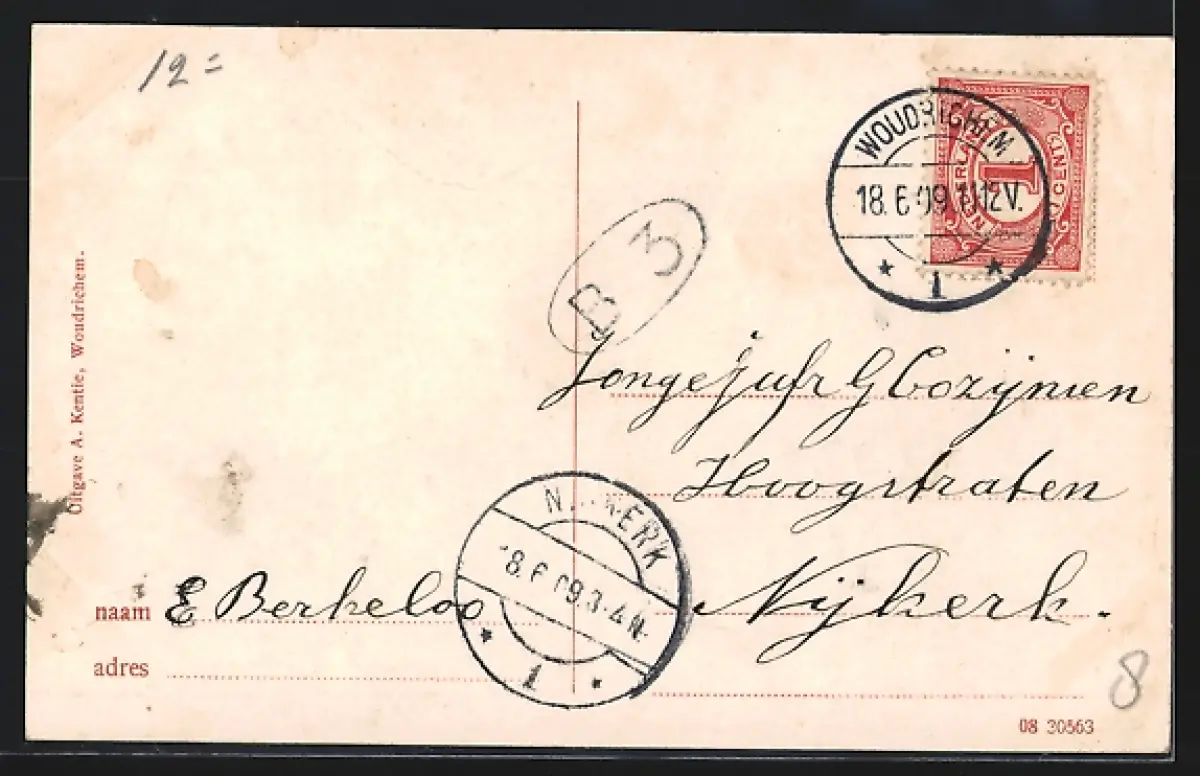 12=
WOUDRICHEM
18.6.09.11-12V.
1
NEDERLAND
1
1 CENT
B 3
Uitgave A. Kentie, Woudrichem.
Jongejufr G Cozijnsen
Hoogstraten
Nijkerk.
N..KERK
18.6.09.3-4N.
1
naam E Berkeloo
adres
8
08 30563